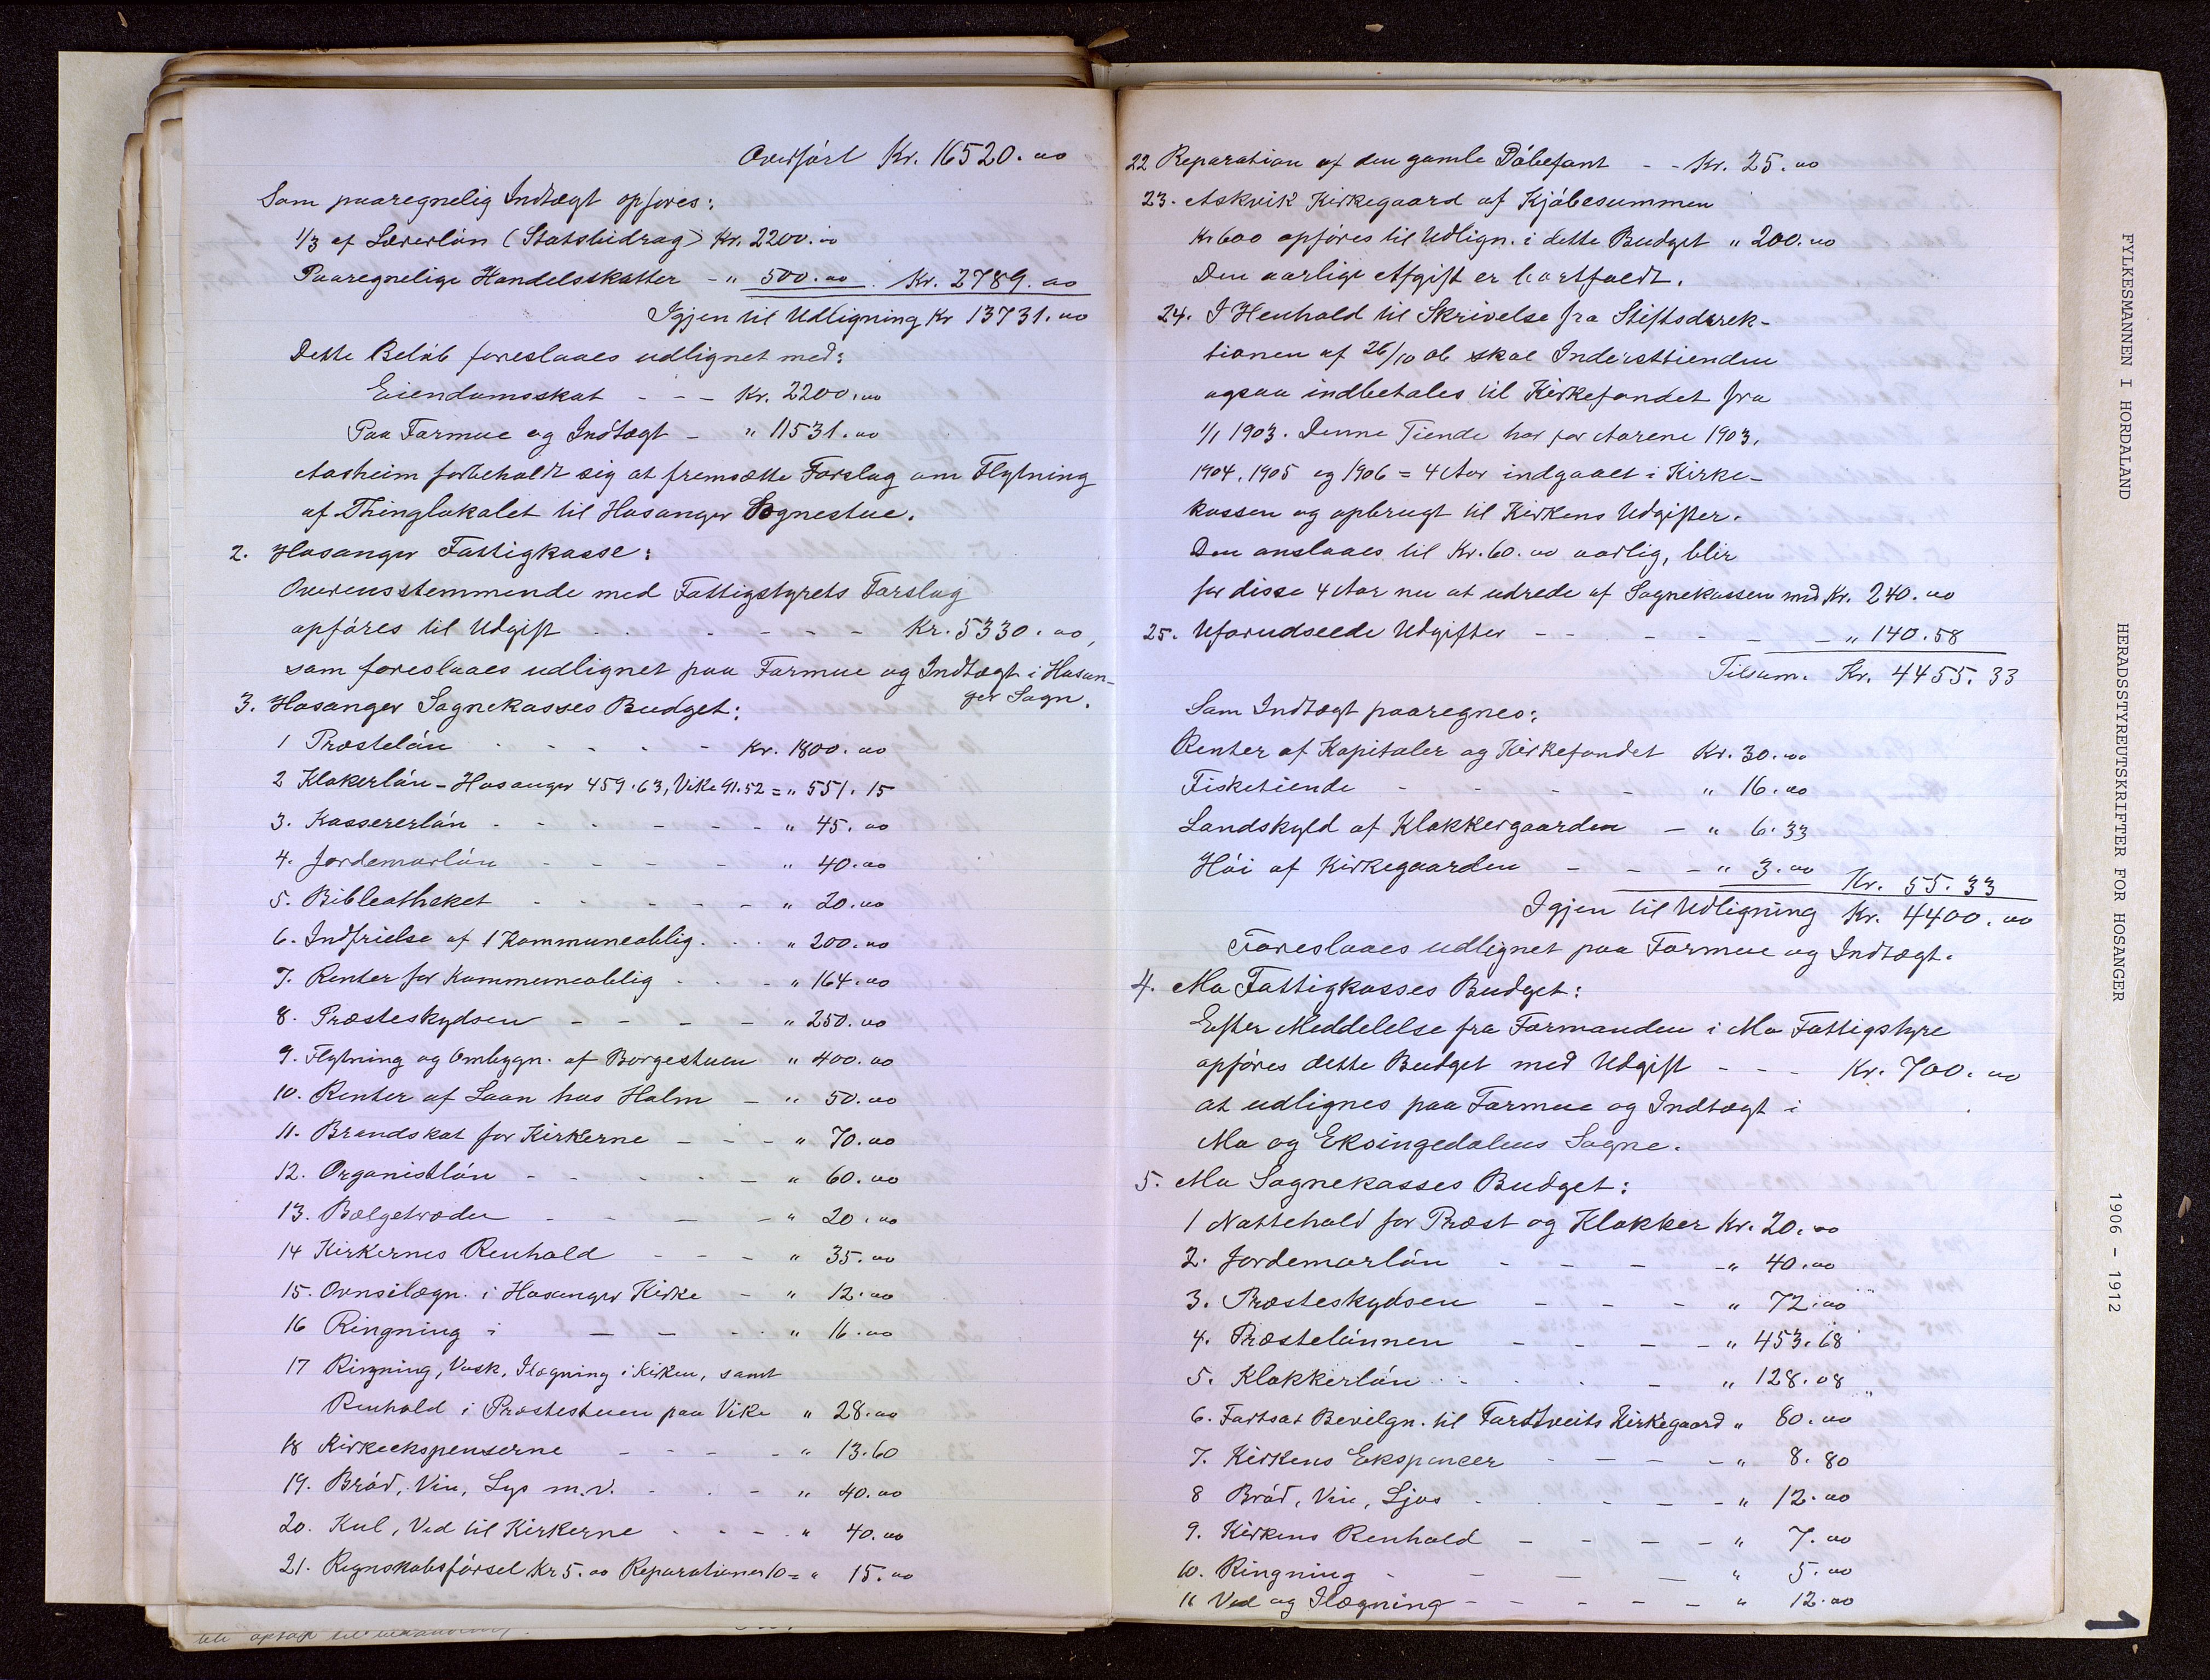 Overført Kr. 16520.00
Som paaregnelig Indtægt opføres:
1/3 af Lærerløn (Statsbidrag) Kr. 2200.00
Paaregnelige Handelsskatter - " 500.00 . Kr. 2789.00
Igjen til Udligning Kr 13731.00
Dette Beløb foreslaaes udlignet med:
Eiendomsskat - - - Kr. 2200.00
Paa Formue og Indtægt - " 11531.00
Aasheim forbeholdt sig at fremsætte Forslag om Flytning
af Thinglokalet til Hosanger Sognestue.
2. Hosanger Fattigkasse:
Overensstemmende med Fattigstyrets Forslag
opføres til Udgift - - - - - - Kr. 5330.00,
som foreslaaes udlignet paa Formue og Indtægt i Hosan-
ger Sogn.
3. Hosanger Sognekasses Budget:
1 Præsteløn - - - - - Kr. 1800.00
2 Klokerløn - Hosanger 459.63, Vike 91.52 = " 551.15
3. Kassererløn - - - - - - " 45.00
4. Jordemorløn - - - - - " 40.00
5. Bibleotheket - - - - - - " 20.00
6. Indfrielse af 1 Kommuneoblig. - - " 200.00
7. Renter for Kommuneoblig - - - " 164.00
8. Præsteskydsen - - - - " 250.00
9. Flytning og Ombygn. af Borgestuen " 400.00
10. Renter af Laan hos Holm - " 50.00
11. Brandskat for Kirkerne - - - " 70.00
12. Organistløn - - - - - " 60.00
13. Bælgetræder - - - - " 20.00
14 Kirkernes Renhold - - - - " 35.00
15. Ovnsilægn. i Hosanger Kirke - " 12.00
16 Ringning i - - - - " 16.00
17 Ringning, Vask, Ilægning i Kirken, samt
Renhold i Præstestuen paa Vike " 28.00
18 Kirkeekspenserne - - - - " 13.60
19. Brød, Vin, Lys m.v. - - - " 40.00
20. Kul, Ved til Kirkerne - - - - " 40.00
21. Regnskabsførsel Kr 5.00 Reparationer 10 = " 15.00
22 Reparation af den gamle Døbefont - - Kr. 25.00
23. Askvik Kirkegaard af Kjøbesummen
Kr 600 opføres til Udlign. i dette Budget " 200.00
Den aarlige Afgift er bortfaldt.
24. I Henhold til Skrivelse fra Stiftsdirek-
tionen af 26/10 06 skal Indersttienden
ogsaa indbetales til Kirkefondet fra
1/1 1903. Denne Tiende har for Aarene 1903,
1904, 1905 og 1906 = 4 Aar indgaaet i Kirke-
kassen og opbrugt til Kirkens Udgifter.
Den anslaaes til Kr. 60.00 aarlig, blir
for disse 4 Aar nu at udrede af Sognekassen med Kr. 240.00
25. Uforudseede Udgifter - - - - - - " 140.58
Tilsam. Kr. 4455.33
Som Indtægt paaregnes:
Renter af Kapitaler og Kirkefondet Kr. 30.00
Fisketiende - - - - - " 16.00
Landskyld af Klokkergaarden - " 6.33
Høi af Kirkegaarden - - - " 3.00 Kr. 55.33
Igjen til Udligning Kr. 4400.00
Foreslaaes udlignet paa Formue og Indtægt.
4. Mo Fattigkasses Budget:
Efter Meddelelse fra Formanden i Mo Fattigstyre
opføres dette Budget med Udgift - - - Kr. 700.00
at udlignes paa Formue og Indtægt i
Mo og Eksingedalens Sogne.
5. Mo Sognekasses Budget:
1 Nattehold for Præst og Klokker Kr. 20.00
2. Jordemorløn - - - - " 40.00
3. Præsteskydsen - - - " 72.00
4. Præstelønnen - - - - " 453.68
5. Klokkerløn - - - - " 128.08
6. Fortsat Bevilgn. til Fardtveits Kirkegaard " 80.00
7. Kirkens Ekspencer - - - - " 8.80
8 Brød, Vin, Ljos - - - - - " 12.00
9. Kirkens Renhold - - - - " 7.00
10. Ringning - - - - " 5.00
11 Ved og Ilægning - - - - - " 12.00
FYLKESMANNEN I HORDALAND HERADSSTYREUTSKRIFTER FOR HOSANGER 1906 - 1912
1